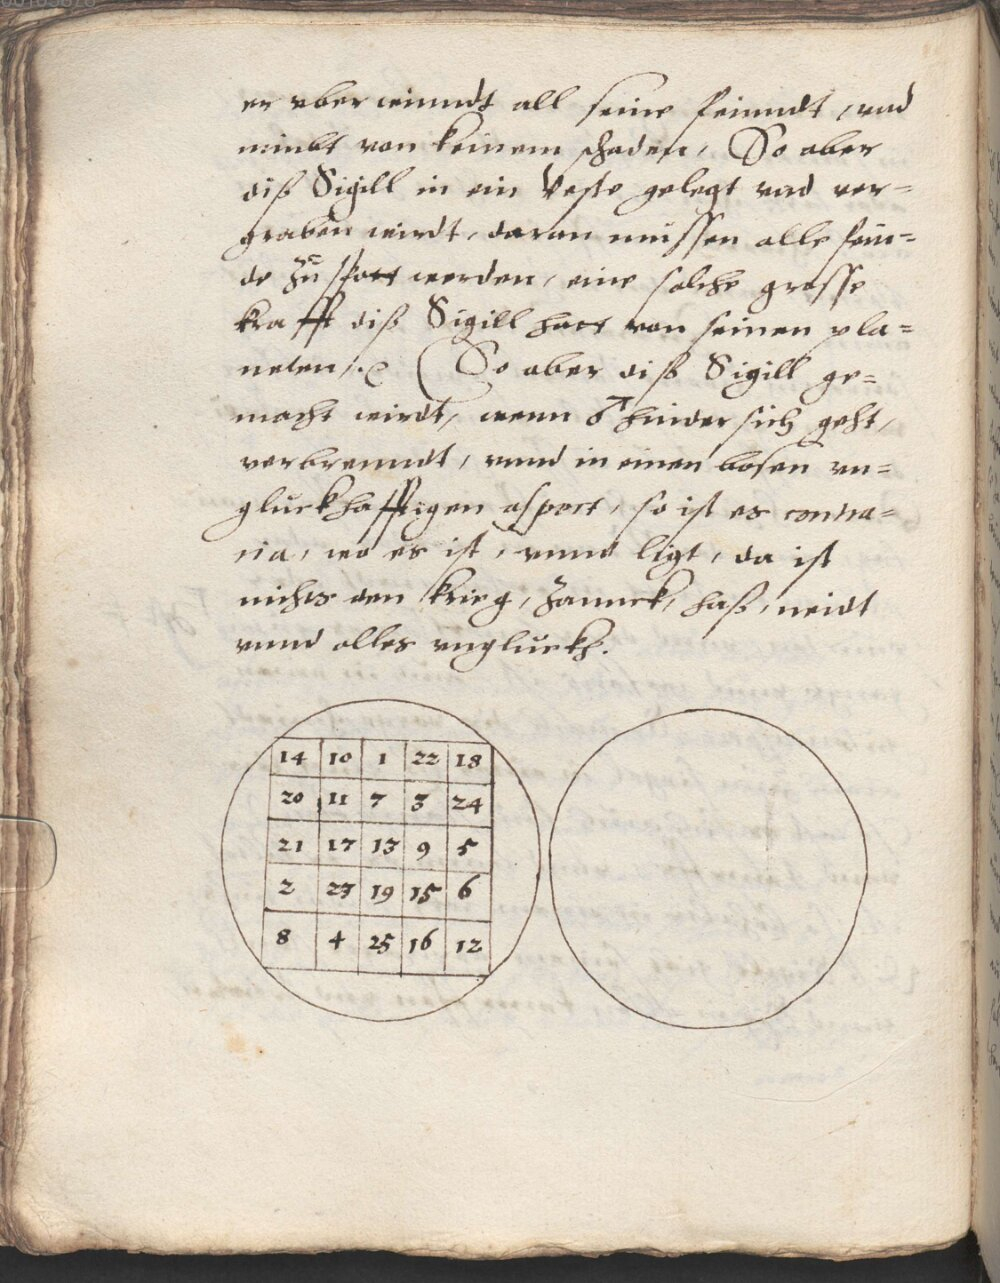 er vberwinndt all seine feinndt, vnd
nimbt von keinem schaden, So aber
diß Sigill in ein Veste gelegt vnd ver=
graben wirdt, daran müssen alle fein=
de zu spott werden, eine solche grosse
krafft diß Sigill hatt von seinen pla=
neten /. So aber diß Sigill ge=
macht wirdt, wenn ♂ hinder sich geht,
verbrenndt, vnnd in einen bosen vn=
gluckhafftigen aspect, so ist es contra=
ria, wo es ist, vnnd ligt, da ist
nichts den krieg, Zannck, haß, neidt
vnnd alles vngluckh.
14 10 1 22 18
20 11 7 3 24
21 17 13 9 5
2 23 19 15 6
8 4 25 16 12